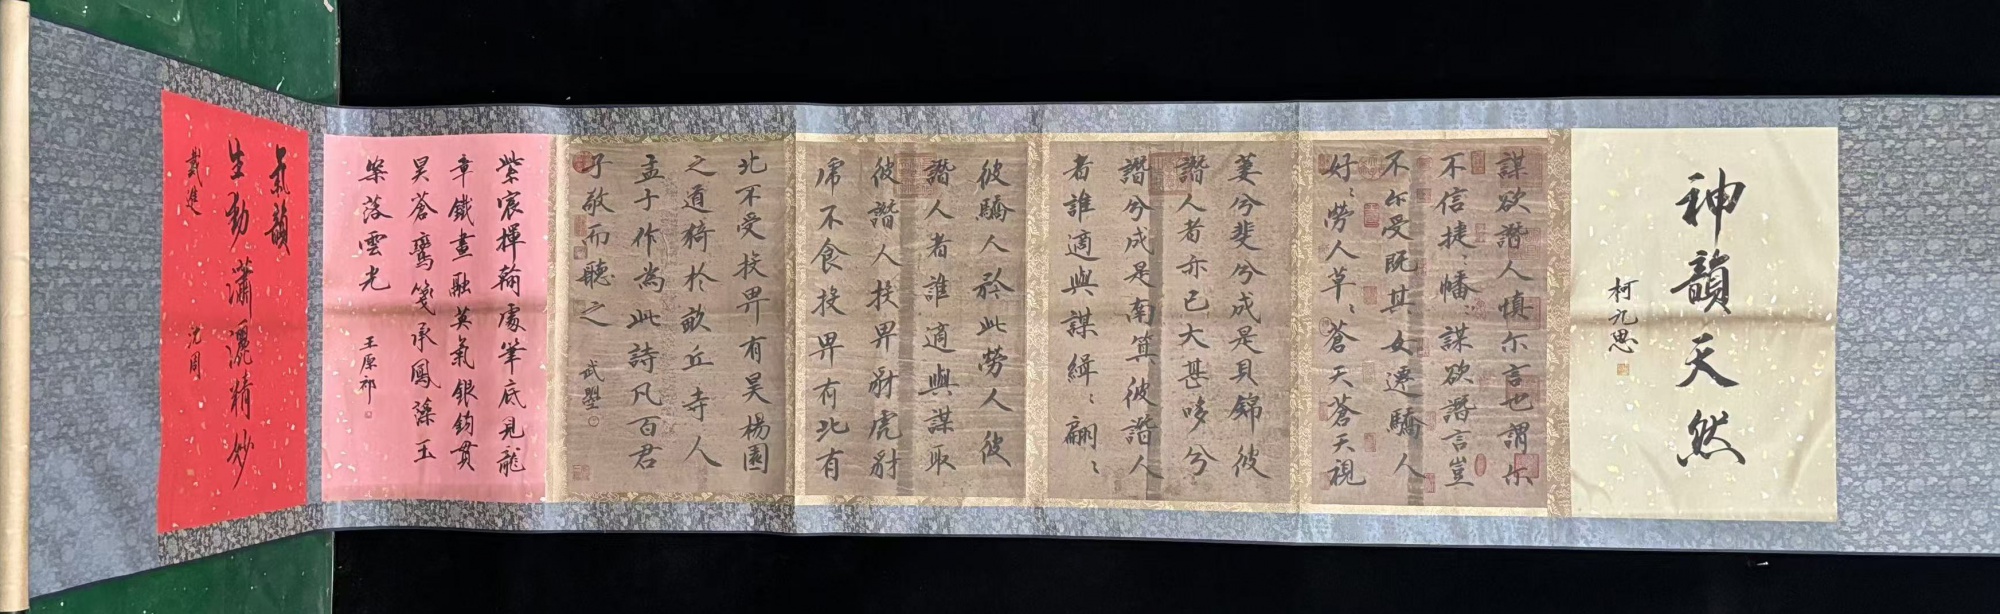 神韻天然
柯九思
謀欲譖人慎尔言也謂尔
不信捷〻幡〻謀欲譖言豈
不尓受既其女遷驕人
好〻勞人草〻蒼天蒼天視
萋兮斐兮成是貝錦彼
譖人者亦已大甚哆兮
譖兮成是南箕彼譖人
者誰適與謀緝〻翩〻
彼驕人矜此勞人彼
譖人者誰適與謀取
彼譖人投畀豺虎豺
虎不食投畀有北有
北不受投畀有昊楊園
之道猗於畝丘寺人
孟子作為此詩凡百君
子敬而聽之
武曌
紫宸揮翰處筆底見龍
章鐵畫融英氣銀鉤貫
昊蒼鸞箋承鳳藻玉
築落雲光
王原祁
氣韻
生動瀟灑精妙
戴進
沈周